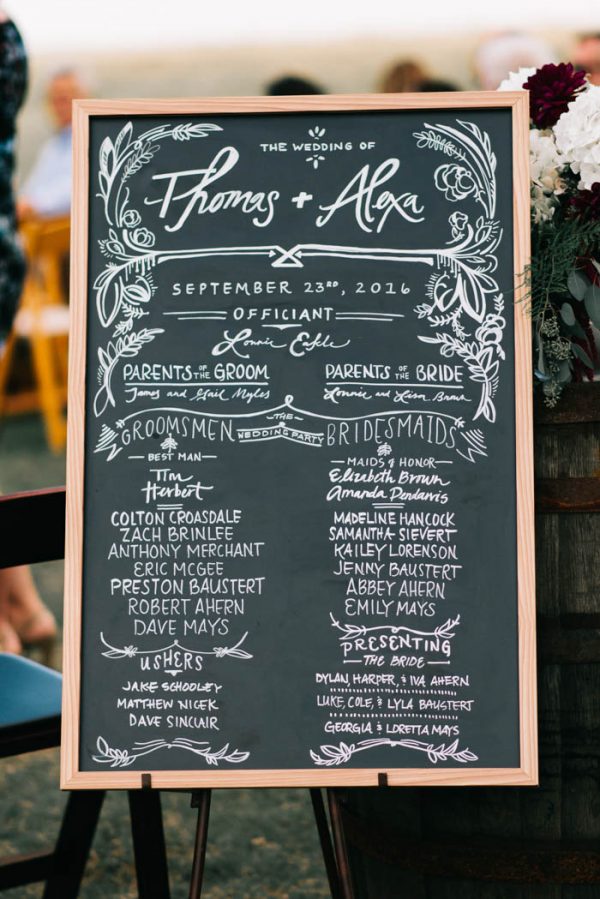 THE WEDDING OF
Thomas + Alexa
SEPTEMBER 23RD, 2016
OFFICIANT
Lonnie
PARENTS OF THE GROOM
James and Gail Myles
PARENTS OF THE BRIDE
Lonnie and Lisa Brown
THE
WEDDING PARTY
GROOMSMEN
BEST MAN
Tim
Herbert
COLTON CROASDALE
ZACH BRINLEE
ANTHONY MERCHANT
ERIC MCGEE
PRESTON BAUSTERT
ROBERT AHERN
DAVE MAYS
USHERS
JAKE SCHOOLEY
MATTHEW NICEK
DAVE SINCLAIR
BRIDESMAIDS
MAIDS OF HONOR
Elizabeth Brown
Amanda Pendarvis
MADELINE HANCOCK
SAMANTHA SIEVERT
KAILEY LORENSON
JENNY BAUSTERT
ABBEY AHERN
EMILY MAYS
PRESENTING
THE BRIDE
DYLAN, HARPER, & IVA AHERN
LUKE, COLE, & LYLA BAUSTERT
GEORGIA & LORETTA MAYS